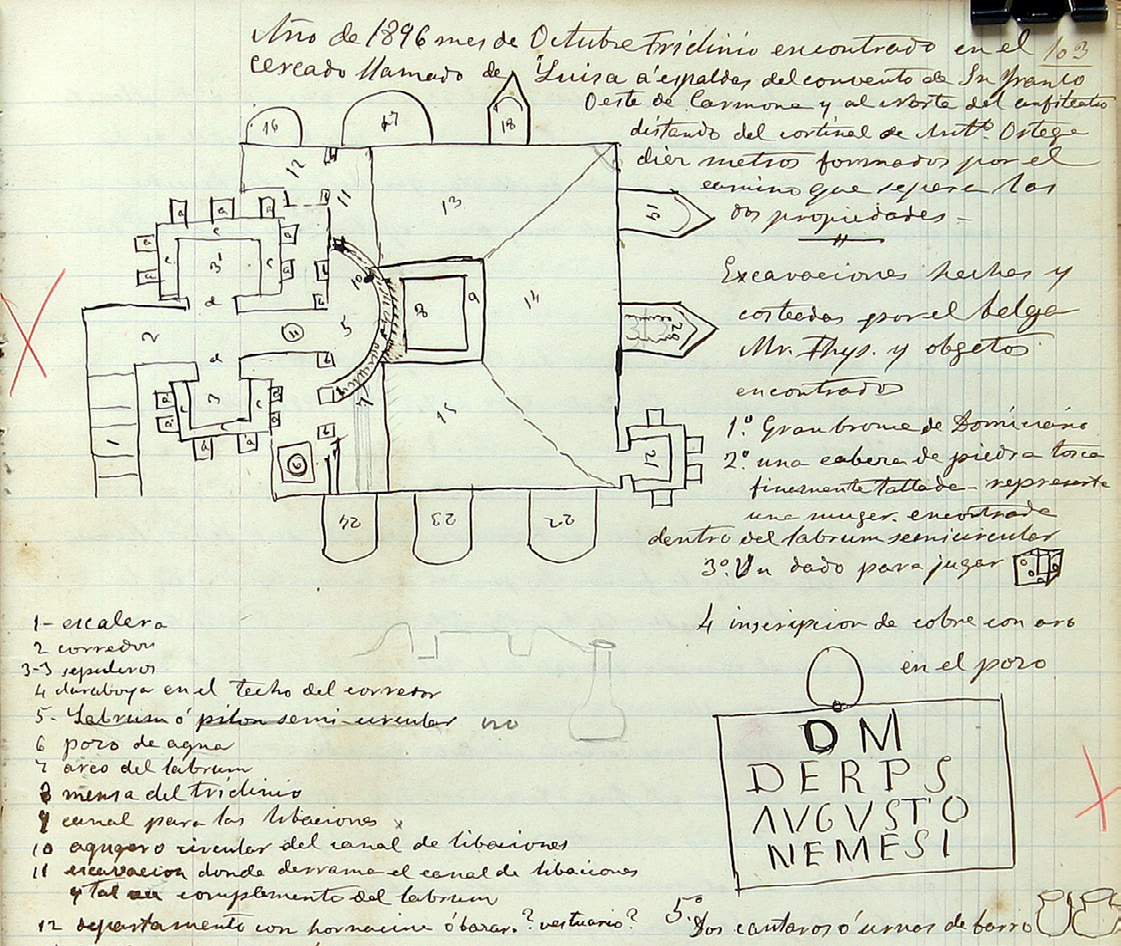 Año de 1896 mes de Octubre Triclinio encontrado en el 103
cercado llamado de Luisa a espaldas del convento de Sn Franco
Oeste de Carmona y al Norte del anfiteatro
distando del cortinal de Antto Ortega
diez metros formados por el
camino que separa las
dos propiedades -
Excavaciones hechas y
costeadas por el belga
Mr. Thys. y obgetos
encontrados
1.º Gran bronce de Domiciano
2.º una cabeza de piedra tosca
finamente tallada - representa
una muger. encontrada
dentro del labrum semicircular
3.º Un dado para jugar
4 inscripcion de cobre con aro
en el pozo
DM
DERPS
AVGVSTO
NEMESI
5.º Dos cantaros ó urnas de barro
1 - escalera
2 corredor
3-3 sepulcros
4 claraboya en el techo del corredor
5 - Labrum ó pilon semi-circular
6 pozo de agua
7 arco del labrum
8 mensa del triclinio
9 canal para las libaciones
10 agugero circular del canal de libaciones
11 excavacion donde derrama el canal de libaciones
y tal complemento del labrum
12 departamento con hornacina ó bazar. ? vestuario?
16
17
18
12
11
13
19
3'
10
8
9
14
20
2
5
3
7
15
21
1
6
24
23
22